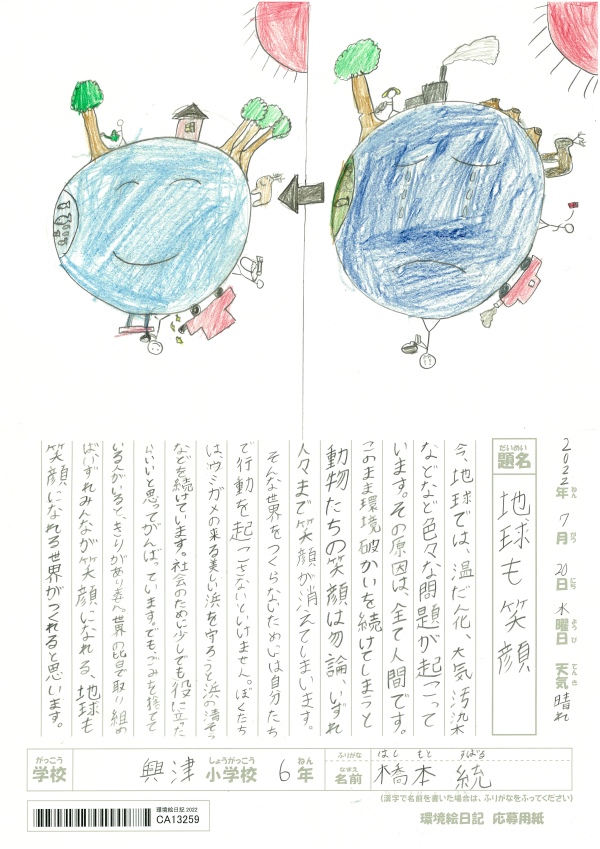 2022年7月20日水曜日 天気 晴れ
ねん がつ にち ようび てんき
だいめい
題名 地球も笑顔
今、地球では、温だん化、大気汚染
などなど色々な問題が起こって
います。その原因は、全て人間です。
このまま環境破かいを続けてしまうと
動物たちの笑顔は勿論、いずれ
人々まで笑顔が消えてしまいます。
そんな世界をつくらないためには自分たち
で行動を起こさないといけません。ぼくたち
は、ウミガメの来る美しい浜を守ろうと浜の清そう
などを続けています。社会のために少しでも役に立った
らいいと思ってがんばっています。でも、ごみを捨てて
いる人がいると、きりがありません。世界の皆で取り組め
ば、いずれみんなが笑顔になれる、地球も
笑顔になれる世界がつくれると思います。
がっこう しょうがっこう ねん
学校 興津小学校 6年
ふりがな はし もと すばる
なまえ
名前 橋本 統
(漢字で名前を書いた場合は、ふりがなをふってください)
環境絵日記 応募用紙
環境絵日記 2022
CA13259